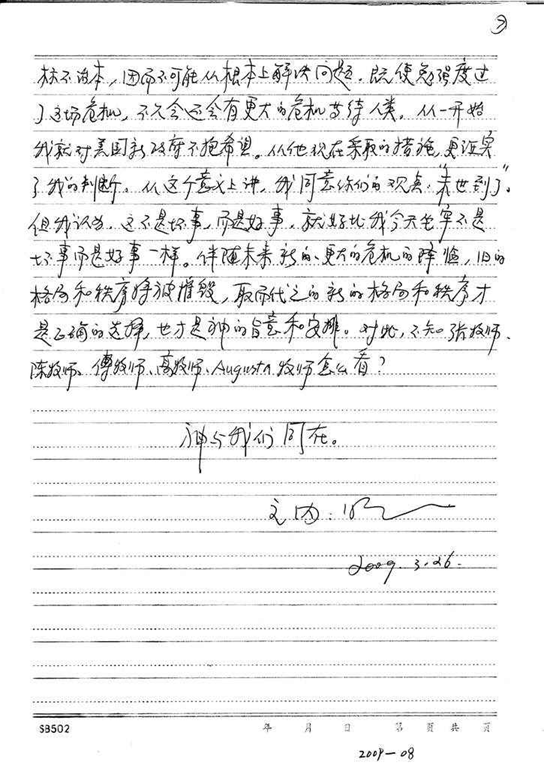 ②
标不治本，因而不可能从根本上解决问题。既使勉强度过
了这场危机，不久会还会有更大的危机等待人类。从一开始
我就对美国新政府不抱希望。从他现在采取的措施，更证实
了我的判断。从这个意义上讲，我同意你们的观点：“末世到了”。
但我认为，这不是坏事，而是好事，就好比我今天坐牢不是
坏事而是好事一样。伴随未来新的、更大的危机的降临，旧的
格局和秩序将被摧毁，取而代之的新的格局和秩序才
是正确的选择，也才是神的旨意和安排。对此，不知张牧师、
陈牧师、傅牧师、高牧师、Augusta牧师怎么看？
神与我们同在。
2009.3.26.
SB502 年 月 日 第 页 共 页
2009-08